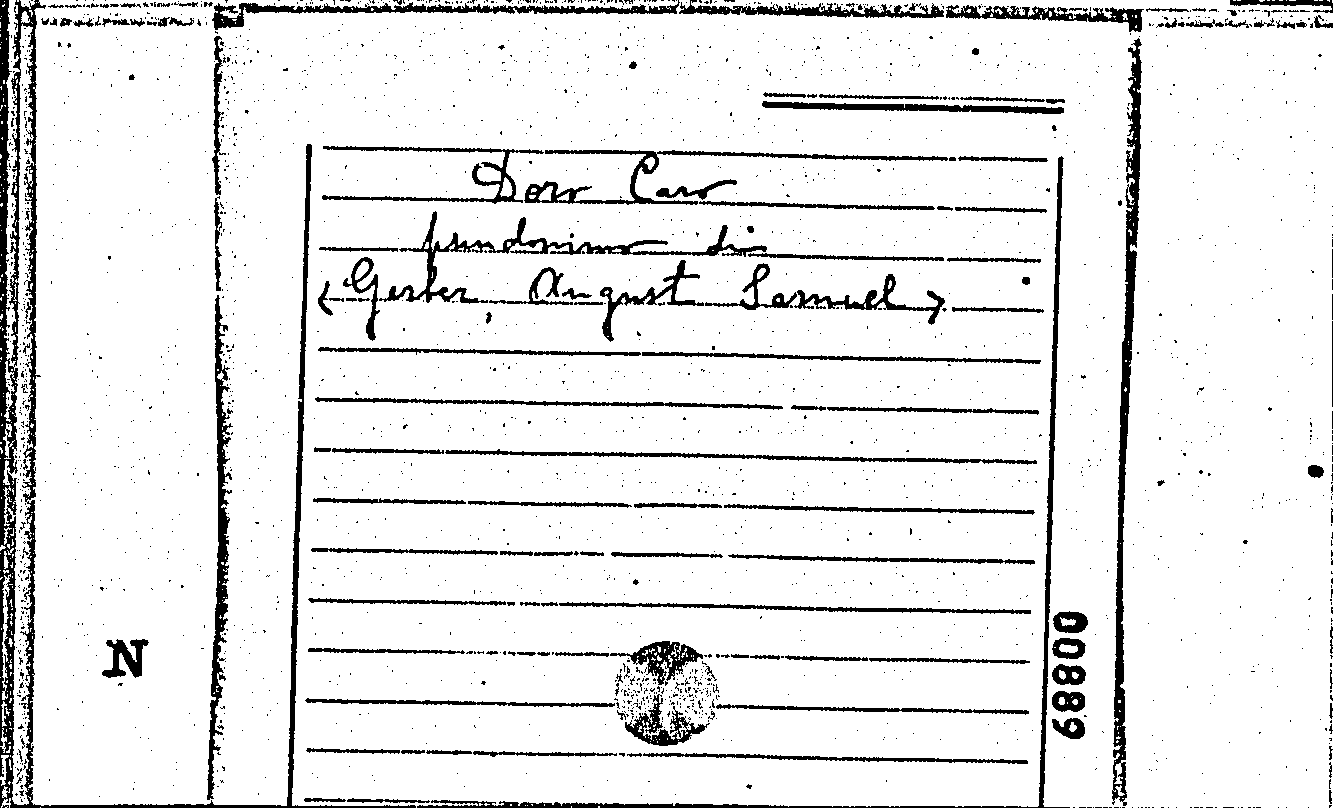 Doro Caro
pseudonimo di
<Gerber, August Samuel>
N
00889